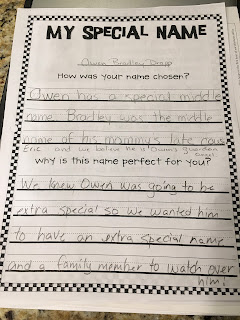 MY SPECIAL NAME
Owen Bradley
How was your name chosen?
Owen has a special middle
name. Bradley was the middle
name of his mommy's late cous
Eric and we believe he is Owen's guardian
angel
why is this name perfect for you?
We knew Owen was going to be
extra special so we wanted him
to have an extra special name
and a family member to watch over
him!